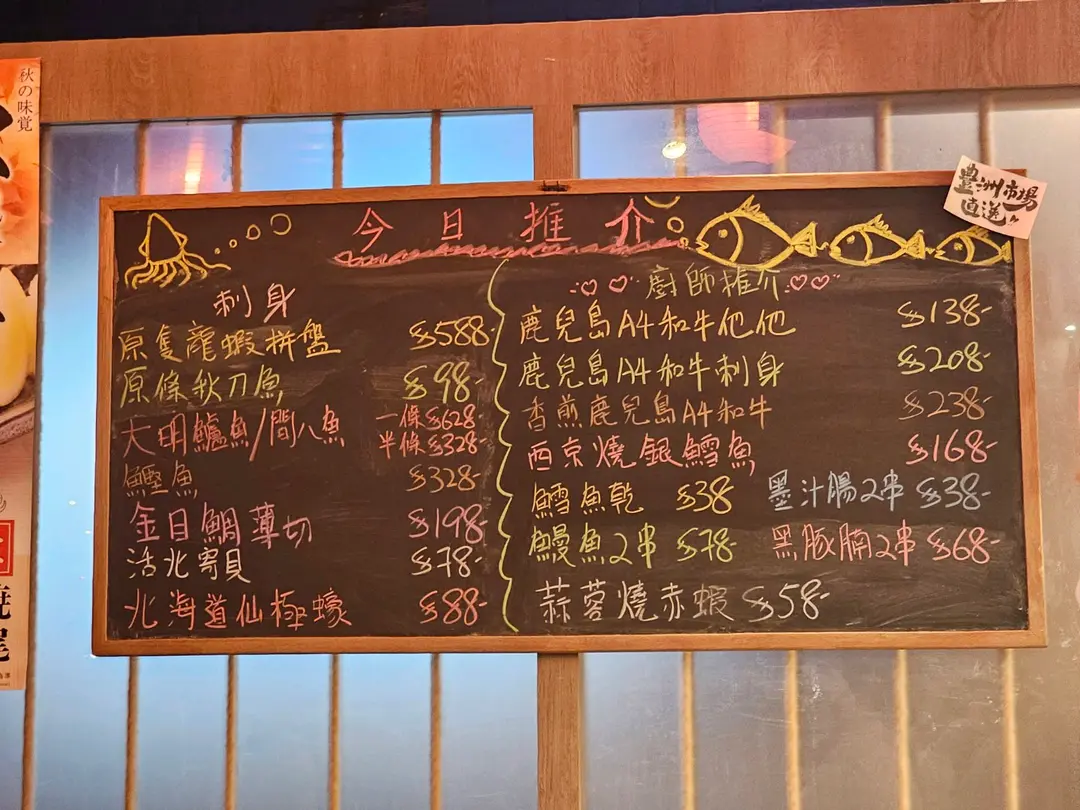 秋の味覚
今日推介
豊洲市場
直送!!
刺身
原隻龍蝦拼盤 $588-
原條秋刀魚 $98-
大明鱸魚/間八魚 一條$628-
半條$328-
鰹魚 $328-
金目鯛薄切 $198-
活北寄貝 $78-
北海道仙極蠔 $88-
廚師推介
鹿兒島A4和牛他他 $138-
鹿兒島A4和牛刺身 $208-
香煎鹿兒島A4和牛 $238-
西京燒銀鱈魚 $168-
鱈魚乾 $38 墨汁腸2串 $38-
鰻魚2串 $78- 黑豚腩2串 $68-
蒜蓉燒赤蝦 $58-